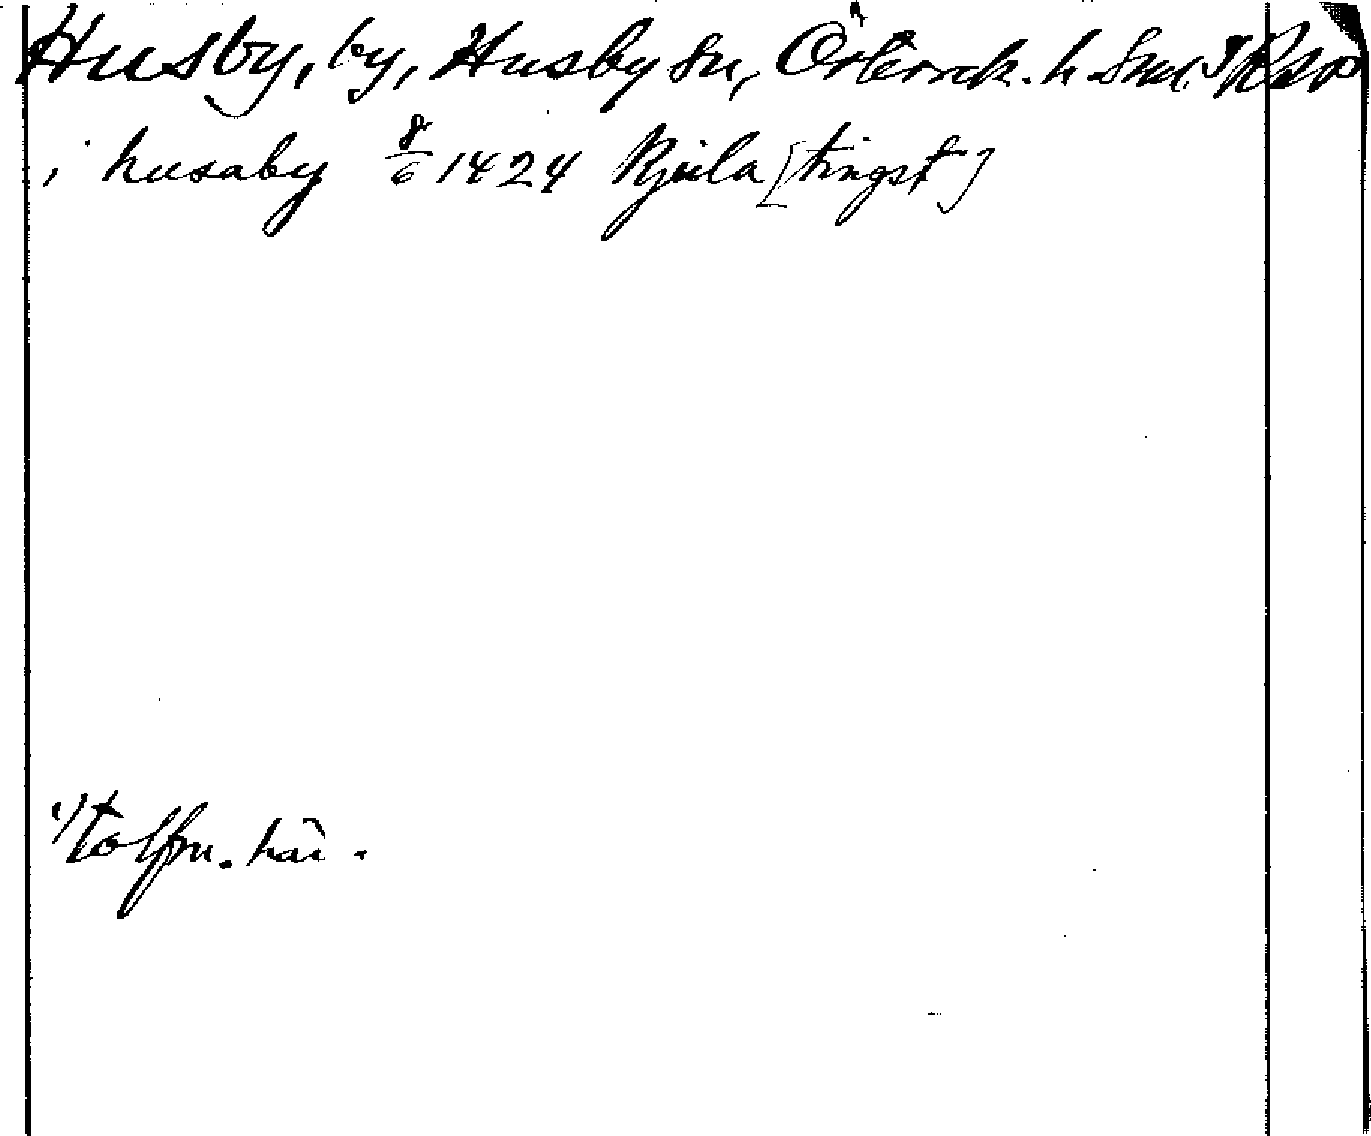 Husby, by, Husby sn, Österrek. h Smd.
i husaby 8/6 1424 Bjula [tingst]
1) tolfm. här.